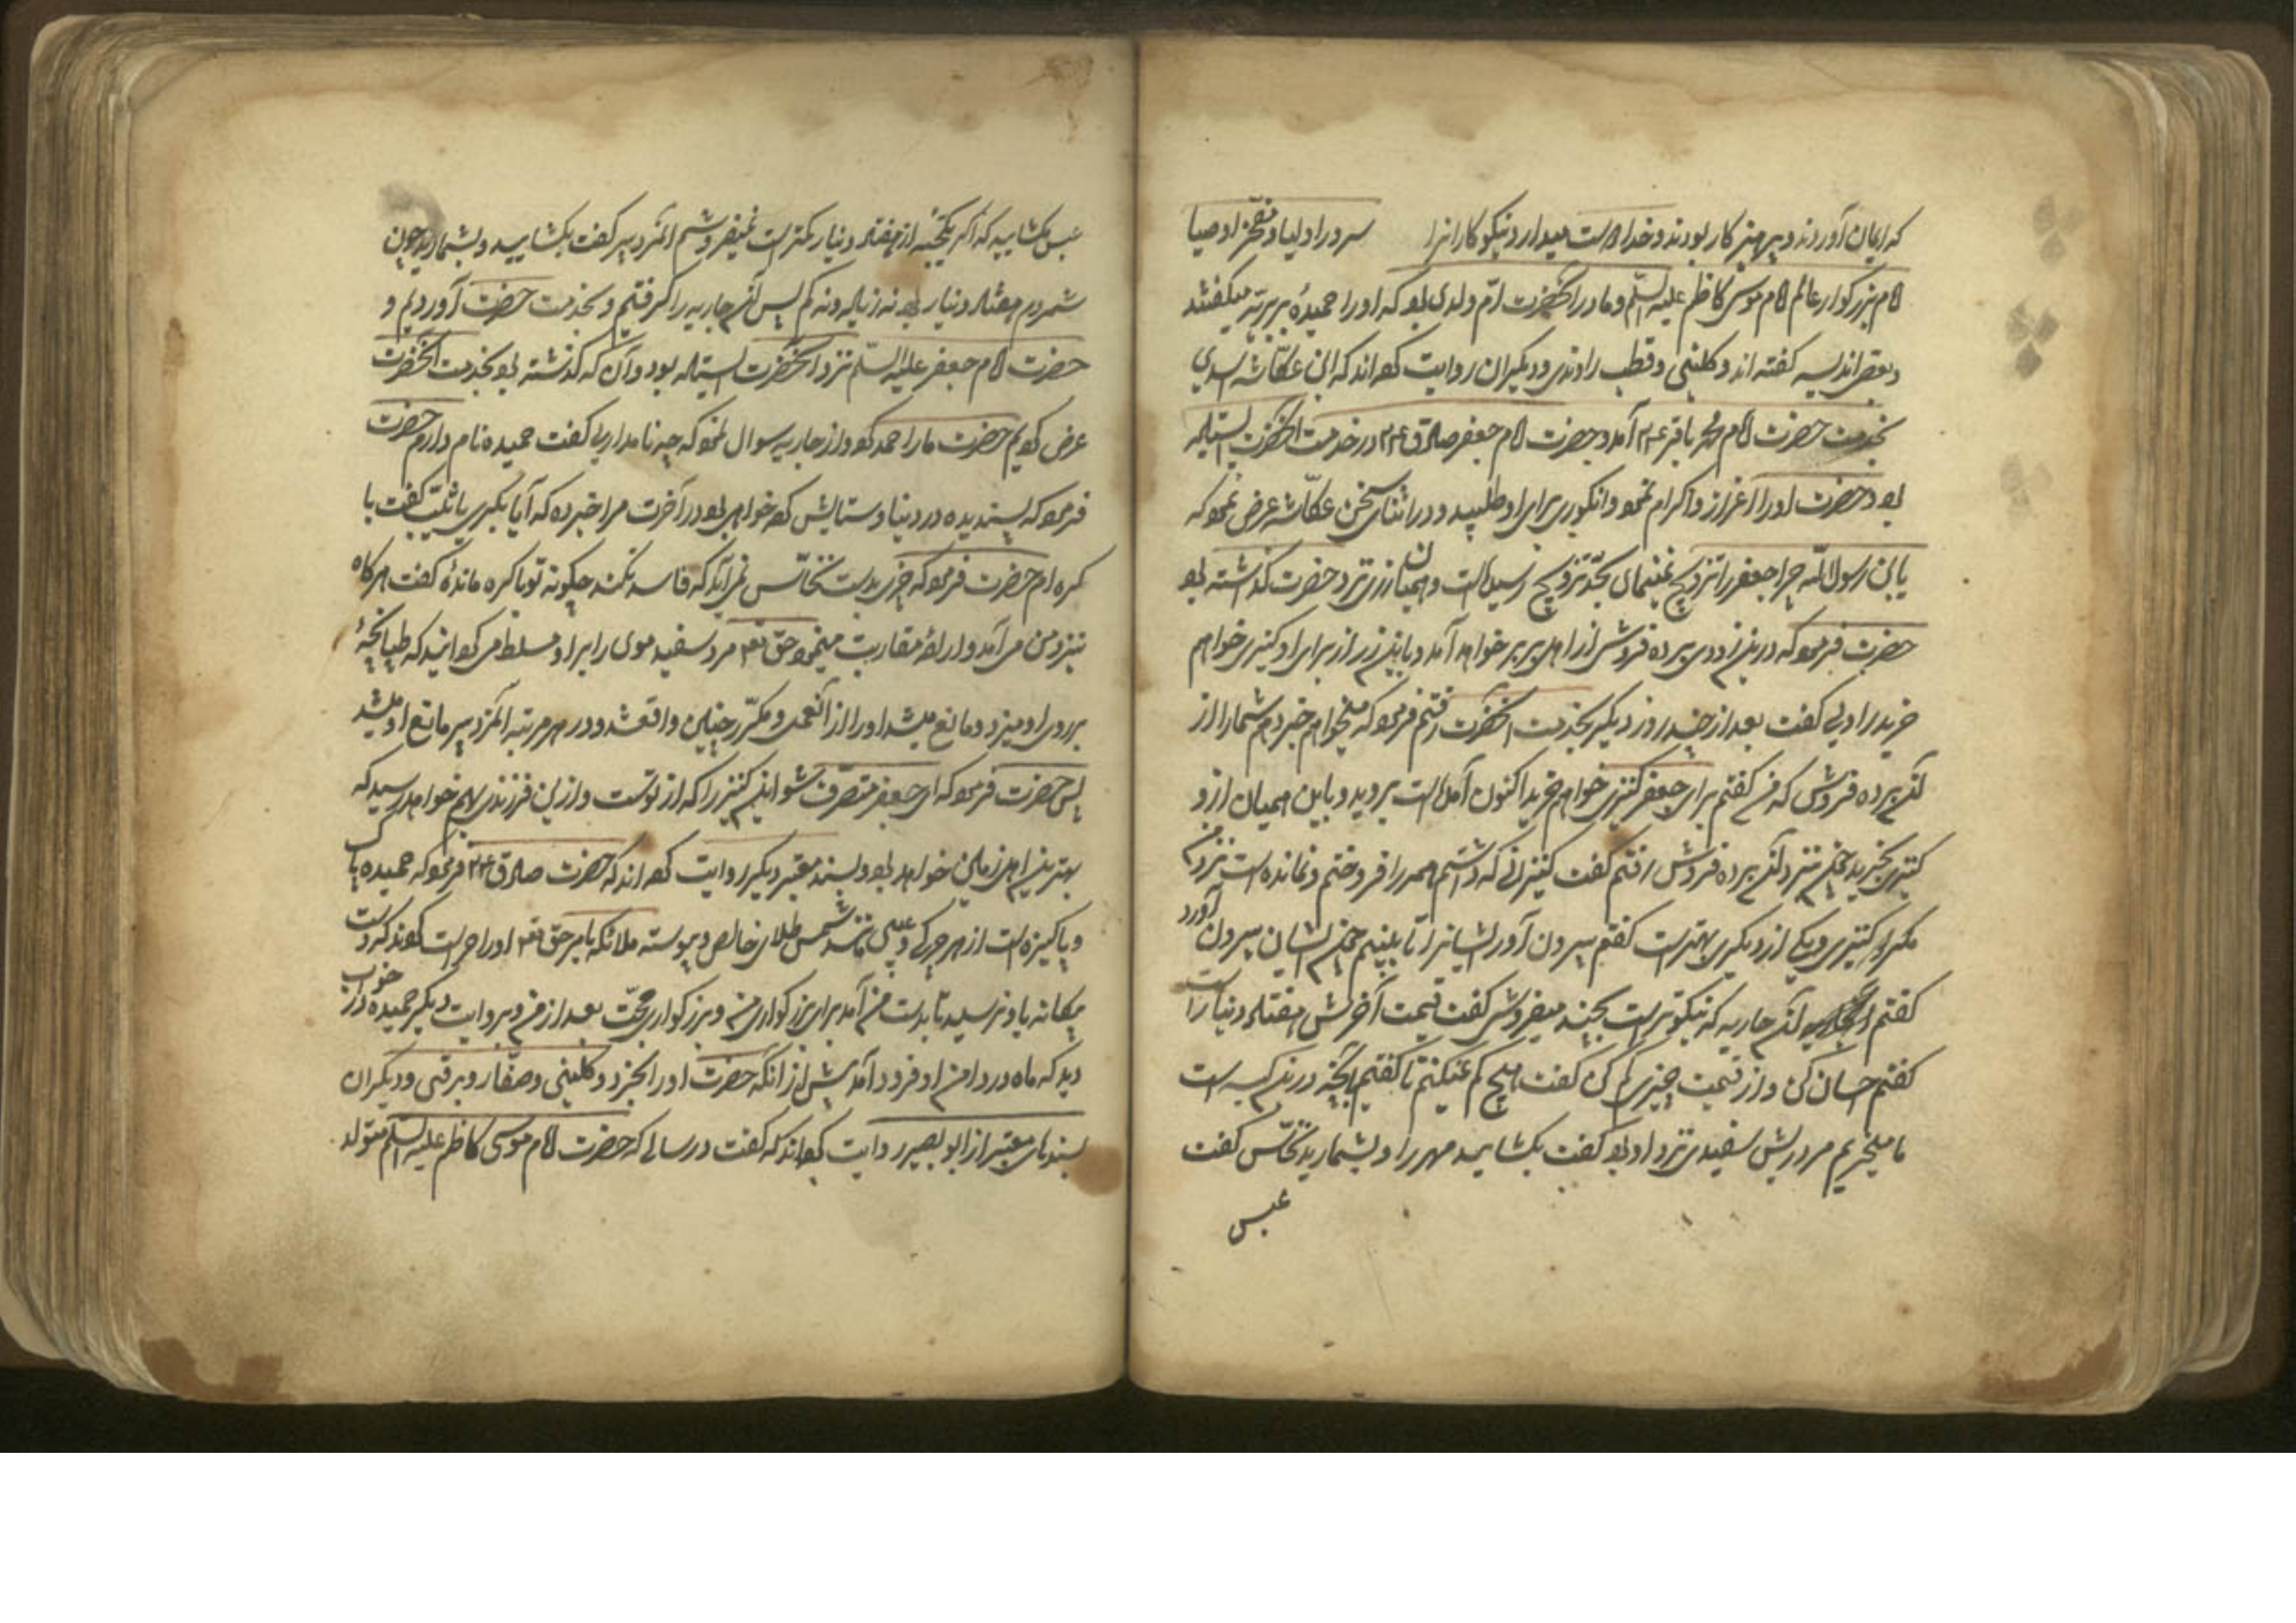 که ایمان آوردند و پرهیز کار بودند و خدا دوست میدارد نیکوکارانرا سرور اولیا و مفخر اوصیا
امام بزرکوار عالم امام موسی کاظم علیه السلم و مادر آنحضرت ام ولدی بود که اورا حمیده بربریه میکفتند
و بعضی اندلسیه کفته اند و کلینی و قطب راوندی و دیکران روایت کرده اند که ابن عکاشه اسدی
بخدمت حضرت امام محمد باقر ع م آمد و حضرت امام جعفر صادق ع م در خدمت آنحضرت ایستاده
بود حضرت اورا اعزاز و اکرام نمود و انکوری برای او طلبید و در اثنای سخن عکاشه عرض نمود که
یا بن رسول الله چرا جعفر را تزویج نمینمائی بحد تزویج رسیده است و همیان زری نزد حضرت کذاشته بود
حضرت فرمود که در این زودی برده فروشی از اهل بربر خواهد آمد و باین زر از برای او کنیزی خواهم
خرید راوی کفت بعد از چند روز دیکر بخدمت آنحضرت رفتم فرمود که میخواهم خبر دهم شما را از
آن برده فروش که من کفتم برای جعفر کنیزی خواهم خرید اکنون آمده است بروید و باین همیان از او
کنیزی بخرید چون نزد آن برده فروش رفتم کفت کنیزانی که داشتم همه را فروختم و نمانده است نزد من
مکر دو کنیزی و یکی از دیکری بهتر است کفتم بیرون آور ایشانرا تا ببینیم چون ایشان بیرون آورد
کفتم آن جاریه که نیکوتر است بچند میفروشی کفت قیمت آخرش هفتاد دینار است
کفتم احسان کن و از قیمت چیزی کم کن کفت هیچ کم نمیکنم تا کفتیم بآنچه در این کیسه است
ما میخریم مرد ریش سفیدی نزد او بود کفت بکشایید مهر را و بشمارید نخاس کفت
عبس
عبس مکشایید که اکر یکحبه از هفتاد دینار کمتر است نمیفروشم آنمرد پیر کفت بکشایید و بشمارید چون
شمردم هفتاد دینار بود نه زیاد و نه کم پس آن جاریه را کرفتیم و بخدمت حضرت آوردیم و
حضرت امام جعفر علیه السلم نزد آنحضرت ایستاده بود و آن که کذشته بود بخدمت آنحضرت
عرض کردیم حضرت ما را حمد کرد و از جاریه سوال نمود که چه نام داری کفت حمیده نام دارم حضرت
فرمود که پسندیده در دنیا و ستایش کرده خواهی بود در آخرت مرا خبر ده که آیا بکری یا ثیب کفت با
کره ام حضرت فرمود که چیزی بدست نخاس نمی آید که فاسد نکند چکونه تو باکره مانده کفت هرکاه
نزد من می آمد و اراده مقاربت مینمود حق تع مرد سفید موی را برا و مسلط می کردانید که طپانچه
بر روی او میزد و مانع میشد اورا از آنعمل و مکرر چنین واقع شد و در هر مرتبه آنمرد پیر مانع او میشد
پس حضرت فرمود که ای جعفر متصرف شو این کنیز را که از توست و از این فرزندی بهم خواهد رسید که
بهترین اهل زمان خواهد بود و بسند معتبر دیکر روایت کرده اند که حضرت صادق ع م فرمود که حمیده پاک
و پاکیزه است از هر چرکی و عیبی مانند شمس طلای خالص و پیوسته ملائکه بامر حق تع اورا حراست کردند که دست
بیکانه باو نرسید تا بدست من آمد برای بزرکواری من و بزرکواری حجت بعد از من و بروایت دیکر حمیده در خواب
دید که ماه در دامن او فرود آمد پیش از آنکه حضرت اورا بخرد و کلینی و صفار و برقی و دیکران
بسندهای معتبر از ابو بصیر روایت کرده اند که کفت در سالی که حضرت امام موسی کاظم علیه السلم متولد